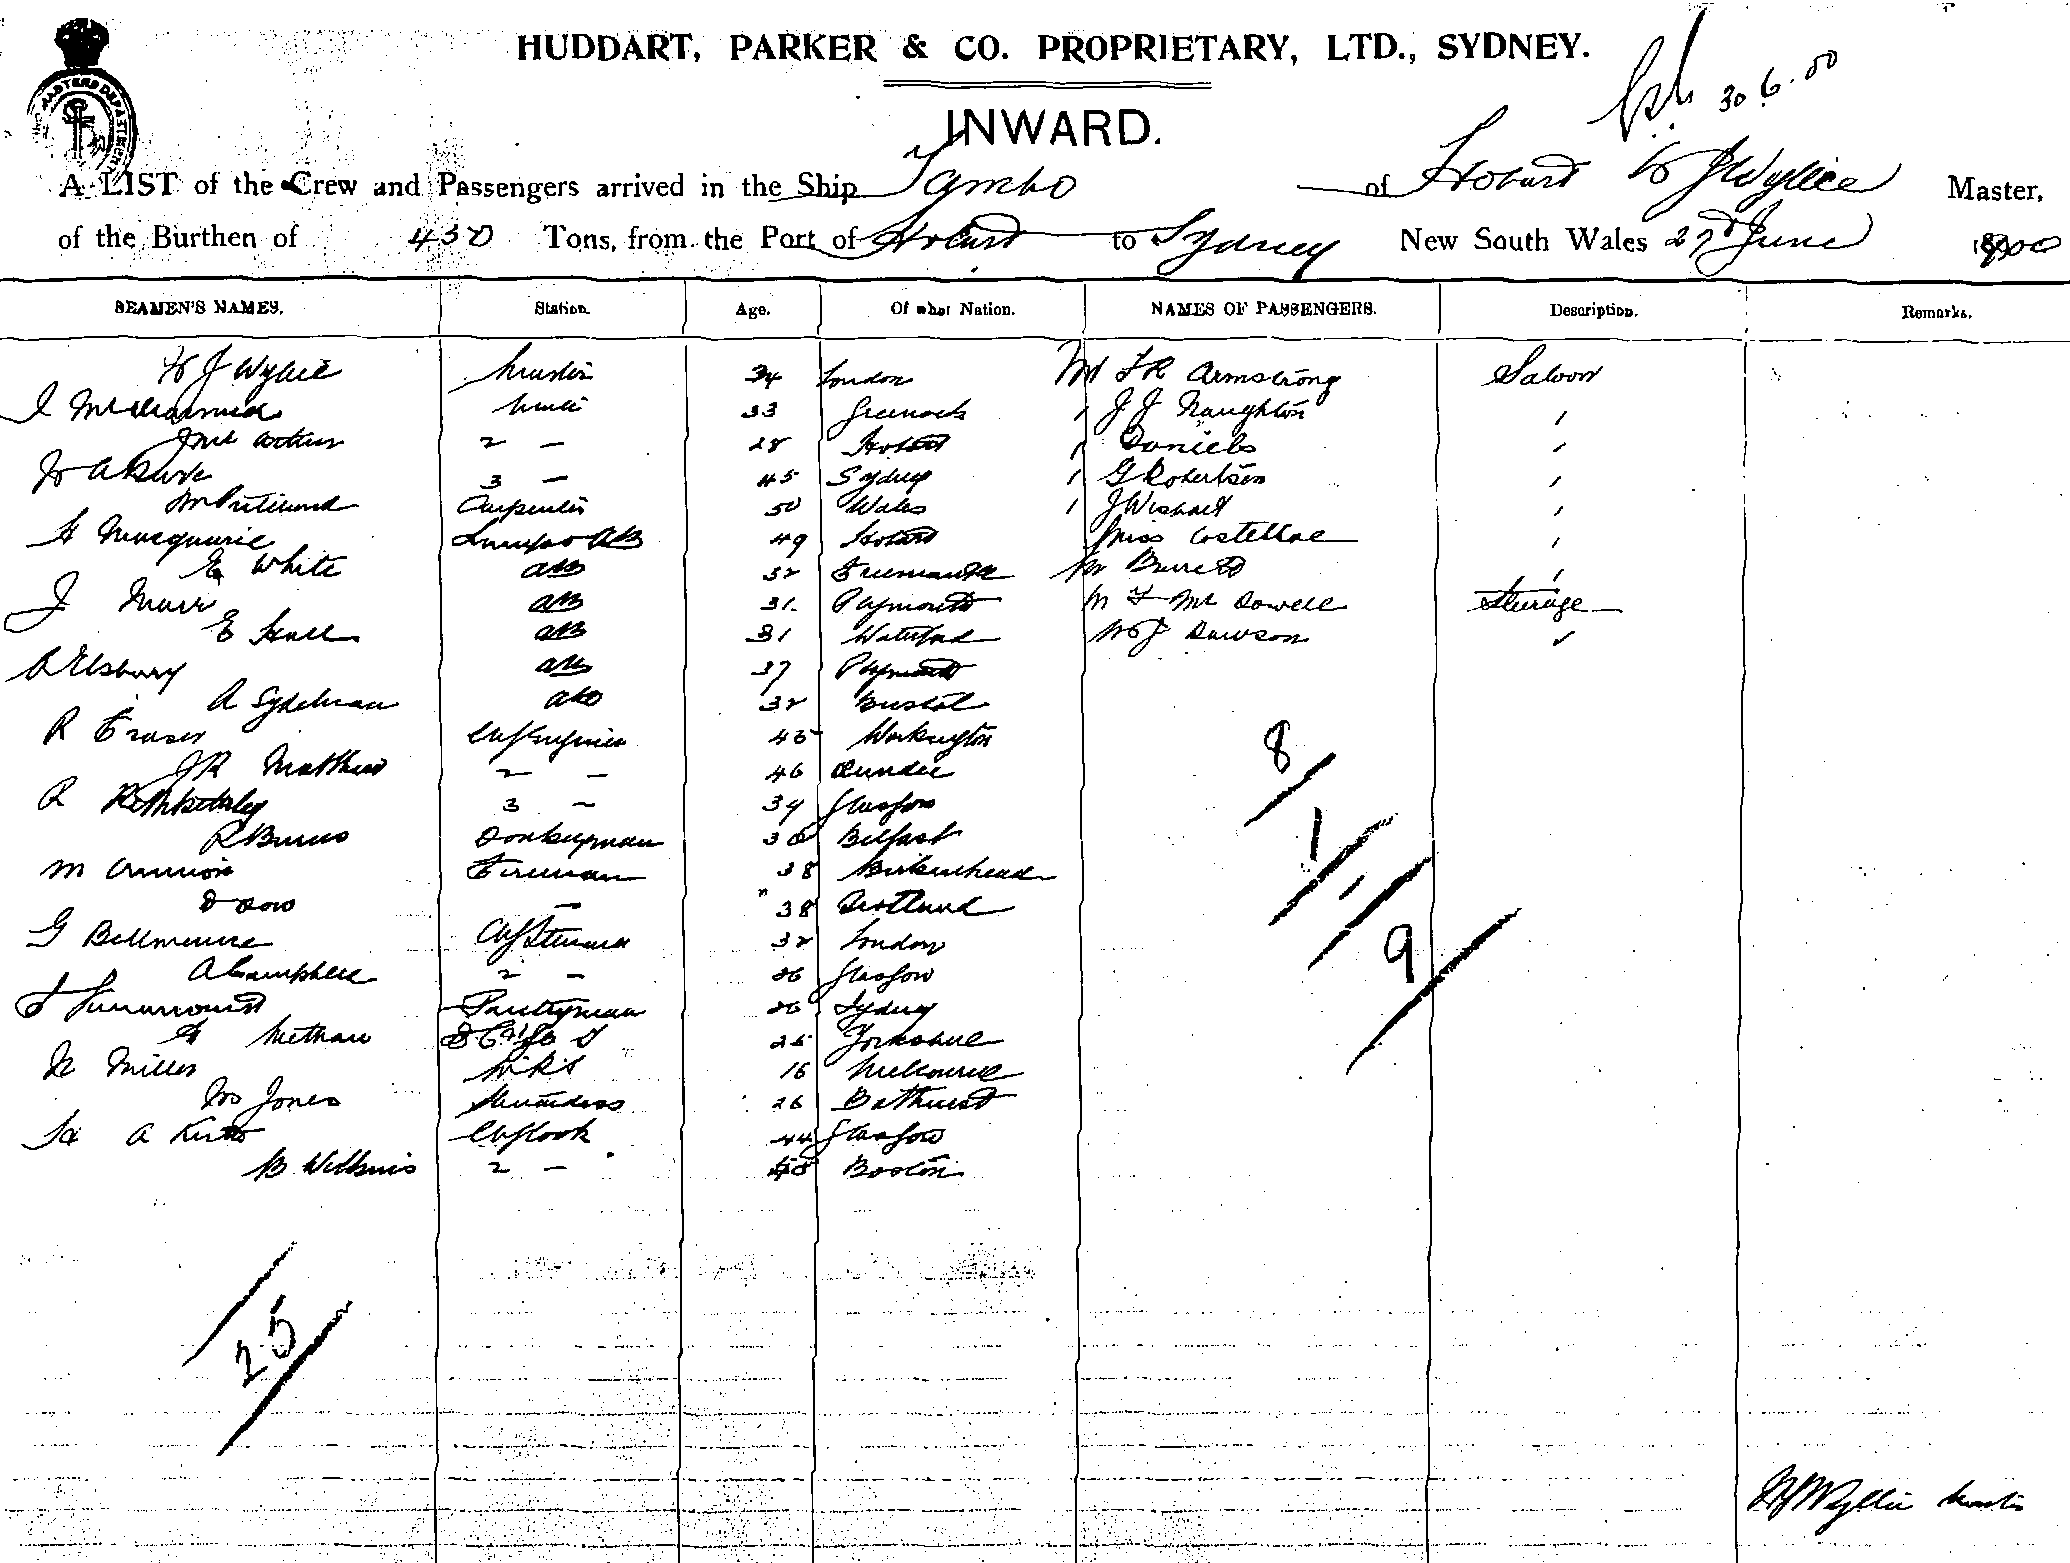 HUDDART, PARKER & CO. PROPRIETARY, LTD., SYDNEY.
30.6.00
INWARD.
A LIST of the Crew and Passengers arrived in the Ship Tambo of Hobart W J Wyllie Master,
of the Burthen of 430 Tons, from the Port of Hobart to Sydney New South Wales 27th June 1900
SEAMEN'S NAMES. Station. Age. Of what Nation. NAMES OF PASSENGERS. Description. Remarks.
W J Wyllie Master 34 London Mr F R Armstrong Saloon
Mate 33 Greenock J J Naughton
J McArthur 2 - 28 Hobart Daniels
3 - 45 Sydney G Robertson
Carpenter 50 Wales J Wishart
H Macquarie Lamps & AB 49 Hobart Miss Costelloe
E White AB 32 Freemantle Mr Burrett
J Marr AB 31 Plymouth Mc Dowell Steerage
E Hall AB 31 Waterford W J Dawson
A Elsbury AB 37 Plymouth
A Sydelman AB 32 Bristol
R Fraser Chf Engineer 45 Workington
J R Matthew 2 - 46 Dundee
R 3 - 39 Glasgow
R Burns Donkeyman 36 Belfast
M Fireman 38 Birkenhead
D Dow - 38 Scotland
G Bellmaine Chf Steward 32 London
A Campbell 2 - 26 Glasgow
Pantryman 26 Sydney
25 Yorkshire
N Miller 16 Melbourne
Mrs Jones Stewardess 26 Bathurst
A Chf Cook 44 Glasgow
B Wilkins 2 - 48 Boston
8
1
9
25
W J Wyllie Master